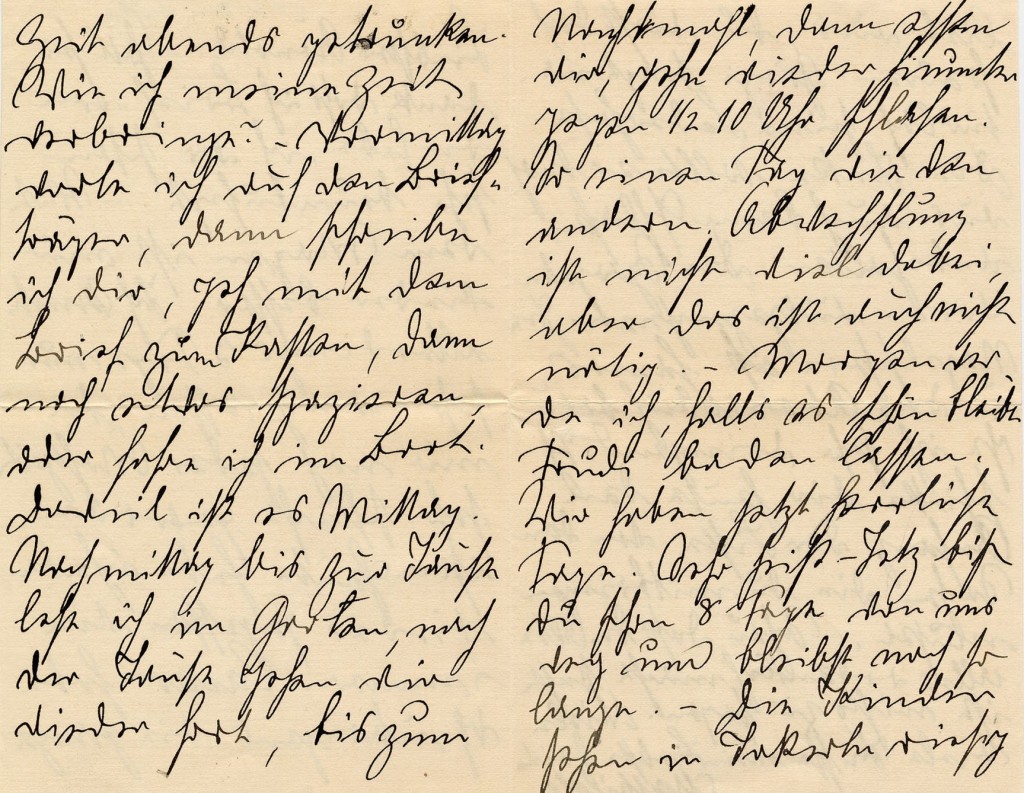 Zeit abends getrunken.
Wie ich meine Zeit
verbringe? – Vormittag
warte ich auf den Brief-
träger, dann schreibe
ich dir, geh mit dem
Brief zum Kasten, dann
noch etwas spazieren,
oder fahre ich im Boot.
Derweil ist es Mittag.
Nachmittag bis zur Jause
lese ich im Garten, nach
der Jause gehen wir
wieder fort, bis zum
Nachtmahl, dann essen
wir, gehn wieder hinunter
gegen 1/2 10 Uhr schlafen.
So einen Tag wie den
andern. Abwechslung
ist nicht viel dabei,
aber das ist auch nicht
nötig. – Morgen wer-
de ich, falls es schön bleibt
Trudi baden lassen.
Wir haben jetzt herrliche
Tage. Sehr heiß – Jetz bist
du schon 8 Tage von uns
weg und bleibst noch so
lange. – Die Kinder
sehen in riesig